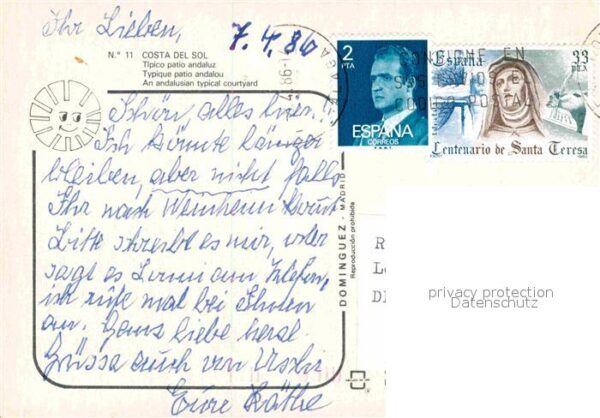 Ihr Lieben,
7.4.86
N.° 11 COSTA DEL SOL
Típico patio andaluz
Typique patio andalou
An andalusian typical courtyard
Schön, alles hier.
Ich könnte länger
bleiben, aber nicht falls
Ihr nach Weinheim kommt
Bitte schreibt es mir, oder
sagt es am Telefon,
ich rufe mal bei Ihnen
an. Ganz liebe herzl.
Grüsse auch von
Eure Käthe
DOMINGUEZ - MADRID
Reproducción prohibida
2
PTA
ESPAÑA
CORREOS
España
33
PTA
Centenario de Santa Teresa
CONSIGNE EN
SUS ENVIOS EL
CODIGO POSTAL
R
L
D
privacy protection
Datenschutz